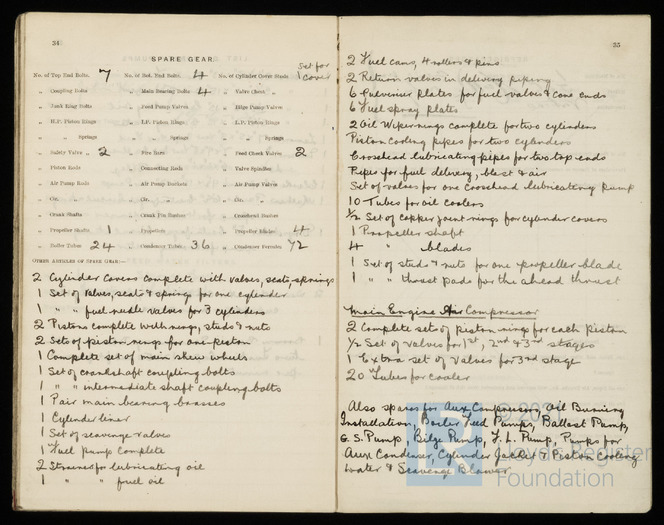 34
SPARE GEAR.
No. of Top End Bolts. 7 No. of Bot. End Bolts 4 No. of Cylinder Cover Studs set for 1 cover
„ Coupling Bolts „ Main Bearing Bolts 4 „ Valve Chest „
„ Junk Ring Bolts „ Feed Pump Valves „ Bilge Pump Valves
„ H.P. Piston Rings „ I.P. Piston Rings „ L.P. Piston Rings
„ „ Springs „ „ Springs „ „ Springs
„ Safety Valve „ 2 „ Fire Bars „ Feed Check Valves 2
„ Piston Rods „ Connecting Rods „ Valve Spindles
„ Air Pump Rods „ Air Pump Buckets „ Air Pump Valves
„ Cir. „ „ Cir. „ „ Cir. „
„ Crank Shafts „ Crank Pin Bushes „ Crosshead Bushes
„ Propeller Shafts 1 „ Propellers „ Propeller Blades 4
„ Boiler Tubes 24 „ Condenser Tubes 36 „ Condenser Ferrules 72
OTHER ARTICLES OF SPARE GEAR:—
2 Cylinder covers complete with valves, seats, springs
1 Set of valves, seats & springs for one cylinder
1 „ „ fuel needle valves for 3 cylinders
2 Pistons complete with rings, studs & nuts
2 Sets of piston rings for one piston
1 Complete set of main skew wheels
1 Set of crankshaft coupling bolts
1 „ „ intermediate shaft coupling bolts
1 Pair main bearing brasses
1 Cylinder liner
1 Set of scavenge valves
1 Fuel pump complete
2 Strainers for lubricating oil
1 „ „ fuel oil
35
2 Fuel cams, 4 rollers & pins
2 Return valves in delivery piping
6 Pulveriser plates for fuel valves & cone ends
6 Fuel spray plates
2 Oil Wiper rings complete for two cylinders
Piston cooling pipes for two cylinders
Crosshead lubricating pipes for two top ends
Pipes for fuel delivery, blast & air
Set of valves for one Crosshead lubricating pump
10 Tubes for oil coolers
1/2 Set of copper joint rings for cylinder covers
1 Propeller shaft
4 „ blades
1 Set of studs & nuts for one propeller blade
1 „ „ thrust pads for the ahead thrust
Main Engine Air Compressor
2 Complete sets of piston rings for each piston
1/2 Set of valves for 1st, 2nd & 3rd stages
1 Extra set of valves for 3rd stage
20 Tubes for cooler
Also spares for Aux Compressors, Oil Burning
Installation, Boiler Feed Pumps, Ballast Pump,
G.S. Pump, Bilge Pump, F.L. Pump, Pumps for
Aux Condenser, Cylinder Jacket & Piston Cooling
Water & Scavenge Blower
Lloyd's Register
Foundation